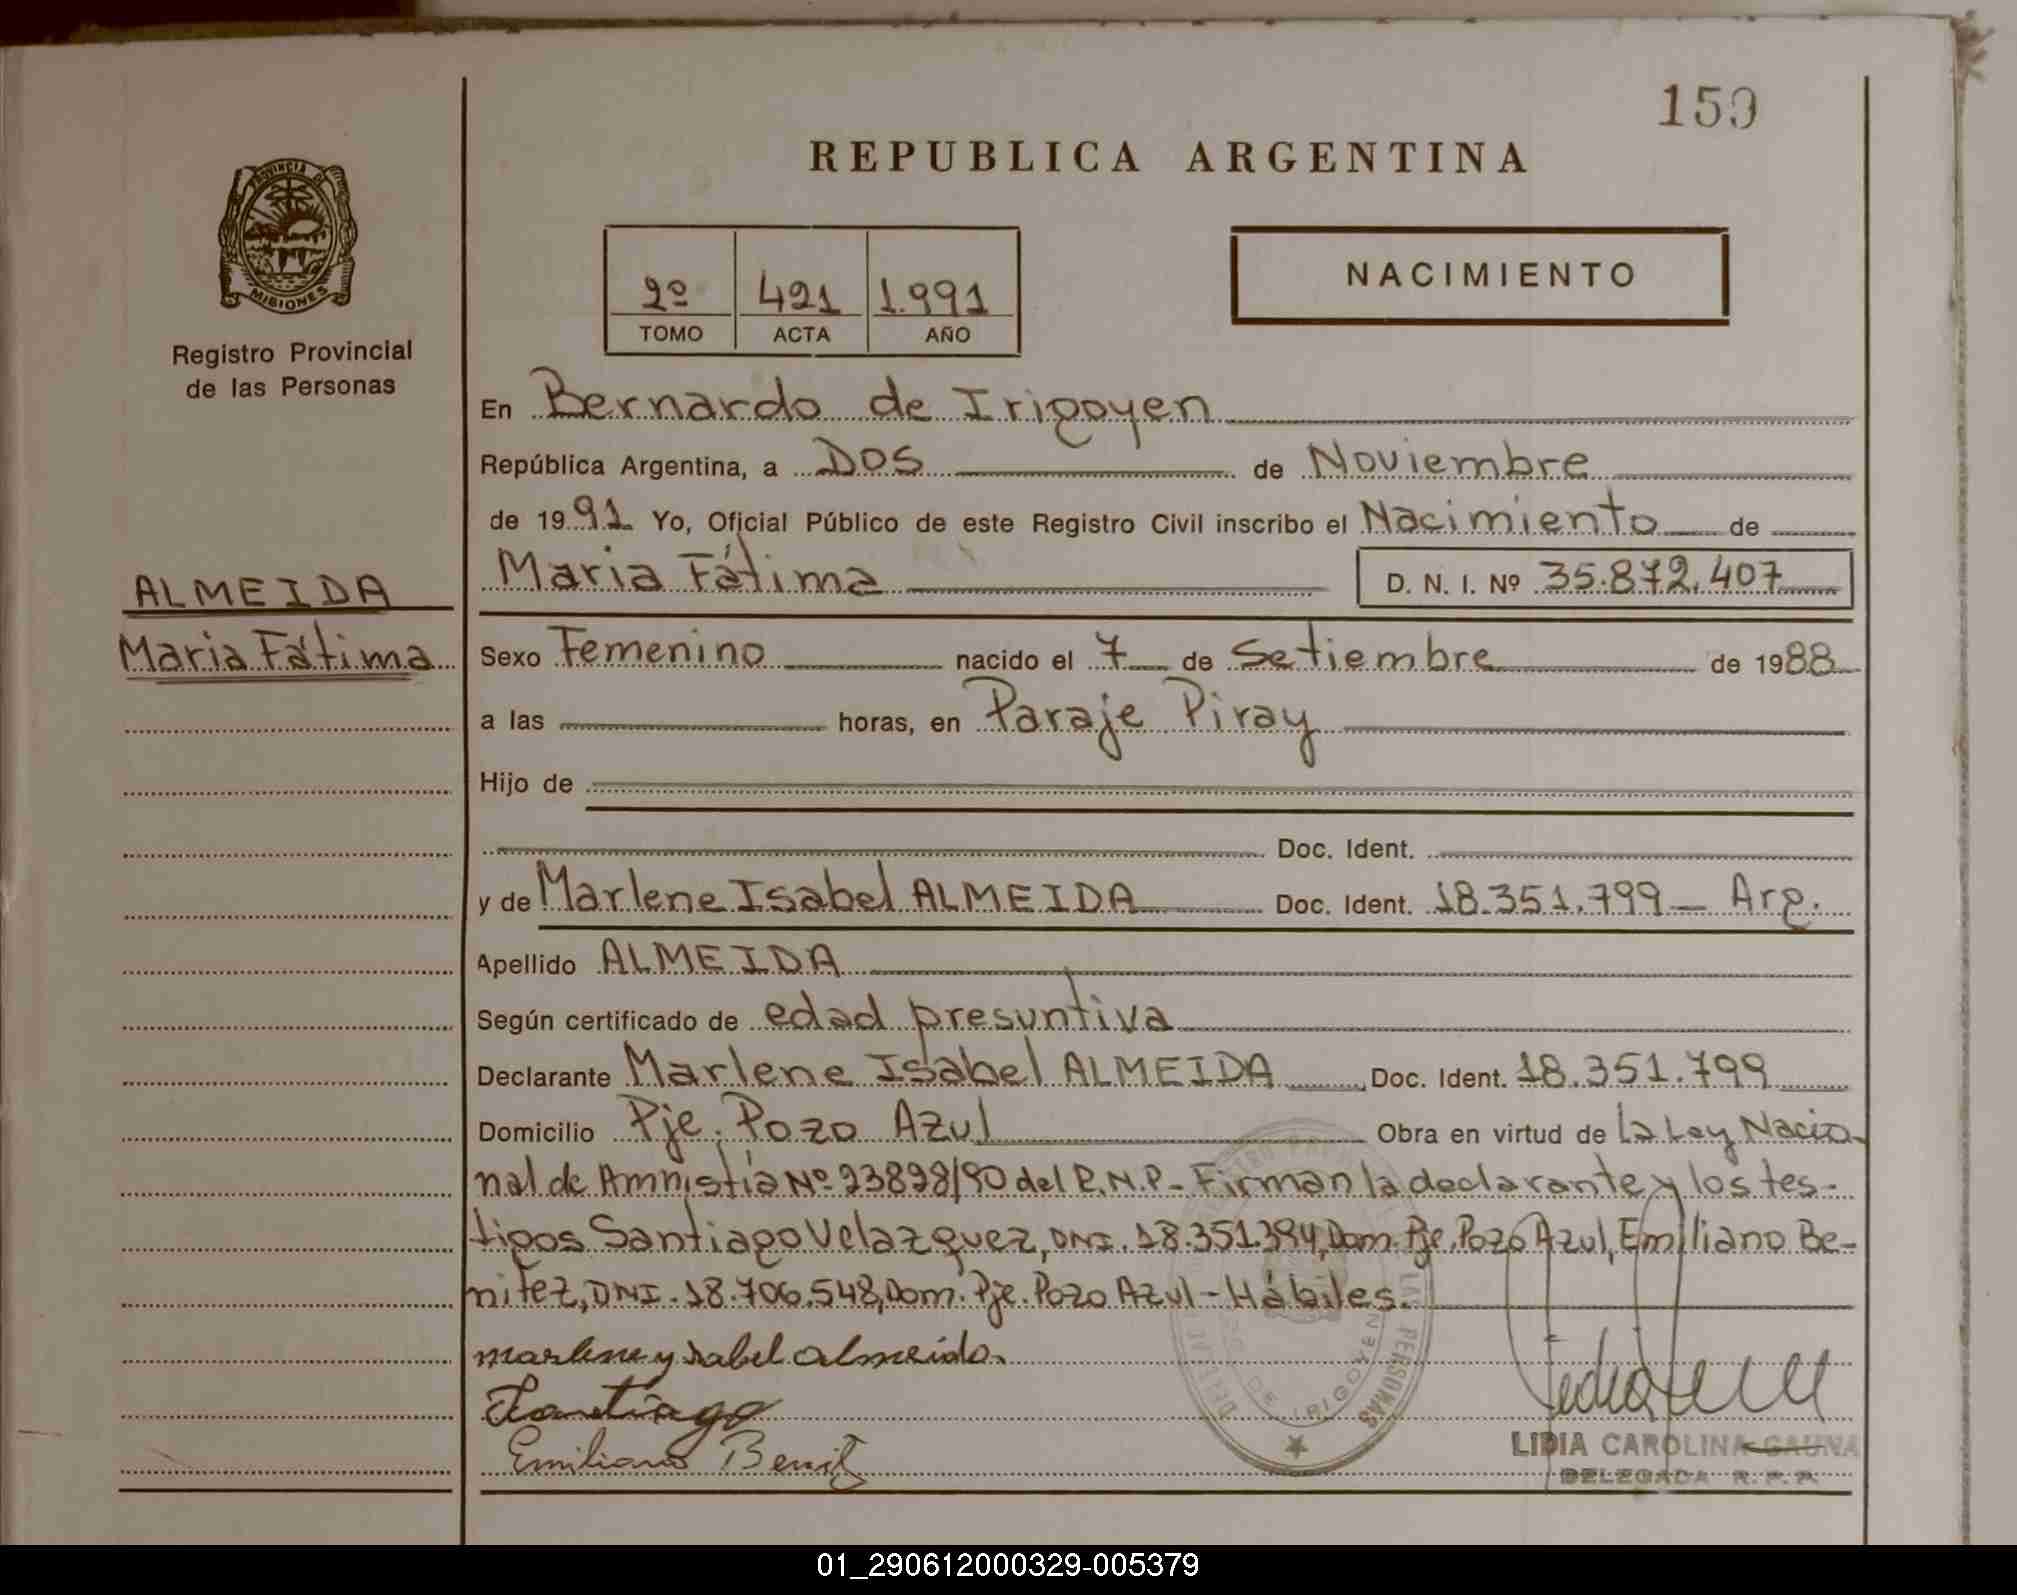 159
REPUBLICA ARGENTINA
PROVINCIA DE
MISIONES
Registro Provincial
de las Personas
2º 421 1.991
TOMO ACTA AÑO
NACIMIENTO
En Bernardo de Irigoyen
República Argentina, a Dos de Noviembre
de 1991 Yo, Oficial Público de este Registro Civil inscribo el Nacimiento de
Maria Fátima D. N. I. Nº 35.872.407
ALMEIDA
Maria Fátima
Sexo Femenino nacido el 7 de Setiembre de 1988
a las horas, en Paraje Piray
Hijo de
Doc. Ident.
y de Marlene Isabel ALMEIDA Doc. Ident. 18.351.799 - Arg.
Apellido ALMEIDA
Según certificado de edad presuntiva
Declarante Marlene Isabel ALMEIDA Doc. Ident. 18.351.799
Domicilio Pje. Pozo Azul Obra en virtud de la Ley Nacio-
nal de Amnistía Nº 23828/90 del R.N.P- Firman la declarante y los tes-
tigos Santiago Velazquez, DNI. 18.351.394, Dom. Pje. Pozo Azul, Emiliano Be-
nitez, DNI. 18.706.548, Dom. Pje. Pozo Azul - Hábiles.
marlene ysabel almeida.
Santiago
Emiliano Benit
DE IRIGOYEN
LIDIA CAROLINA GAUNA
DELEGADA R. P. P.
01_290612000329-005379